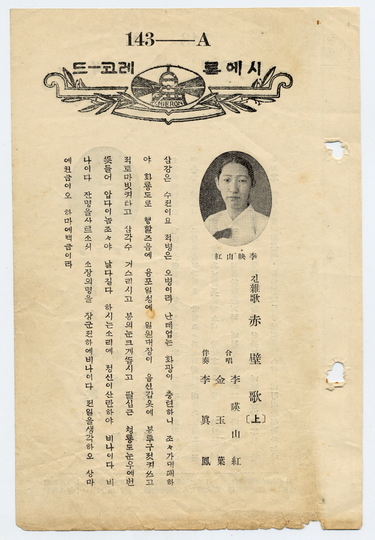 143——A
시에론 레코―드
CHIERON
李暎山紅
긴雜歌 赤壁歌〔上〕
合唱 李暎山紅
金玉葉
伴奏 李眞鳳
삼강은 수전이요 적병은 오병이라 난데업는 화광이 충텬하니 조々가대패하
야 화룡도로 행할즈음에 응포일성에 일원대장이 을신갑옷에 봉투구젓켜쓰고
적토마빗겨타고 삼각수 거스리시고 봉의눈크게뜰시고 팔십근 청룡도눈우에번
뜻들어 압다이놈조々야 날다길다 하시는소리에 정신이산란하야 비나이다 비
나이다 잔명을사르소서 소장의명을 장군전하에비나이다 전일을생각하오 상마
에천금이오 하마에백금이라